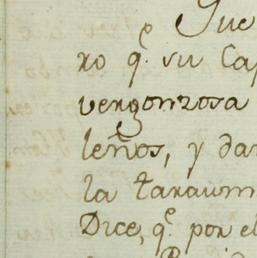 Que
ro q.e su Cap
vergonzosa
leños, y dar
la taraum
Dice, q.e por el